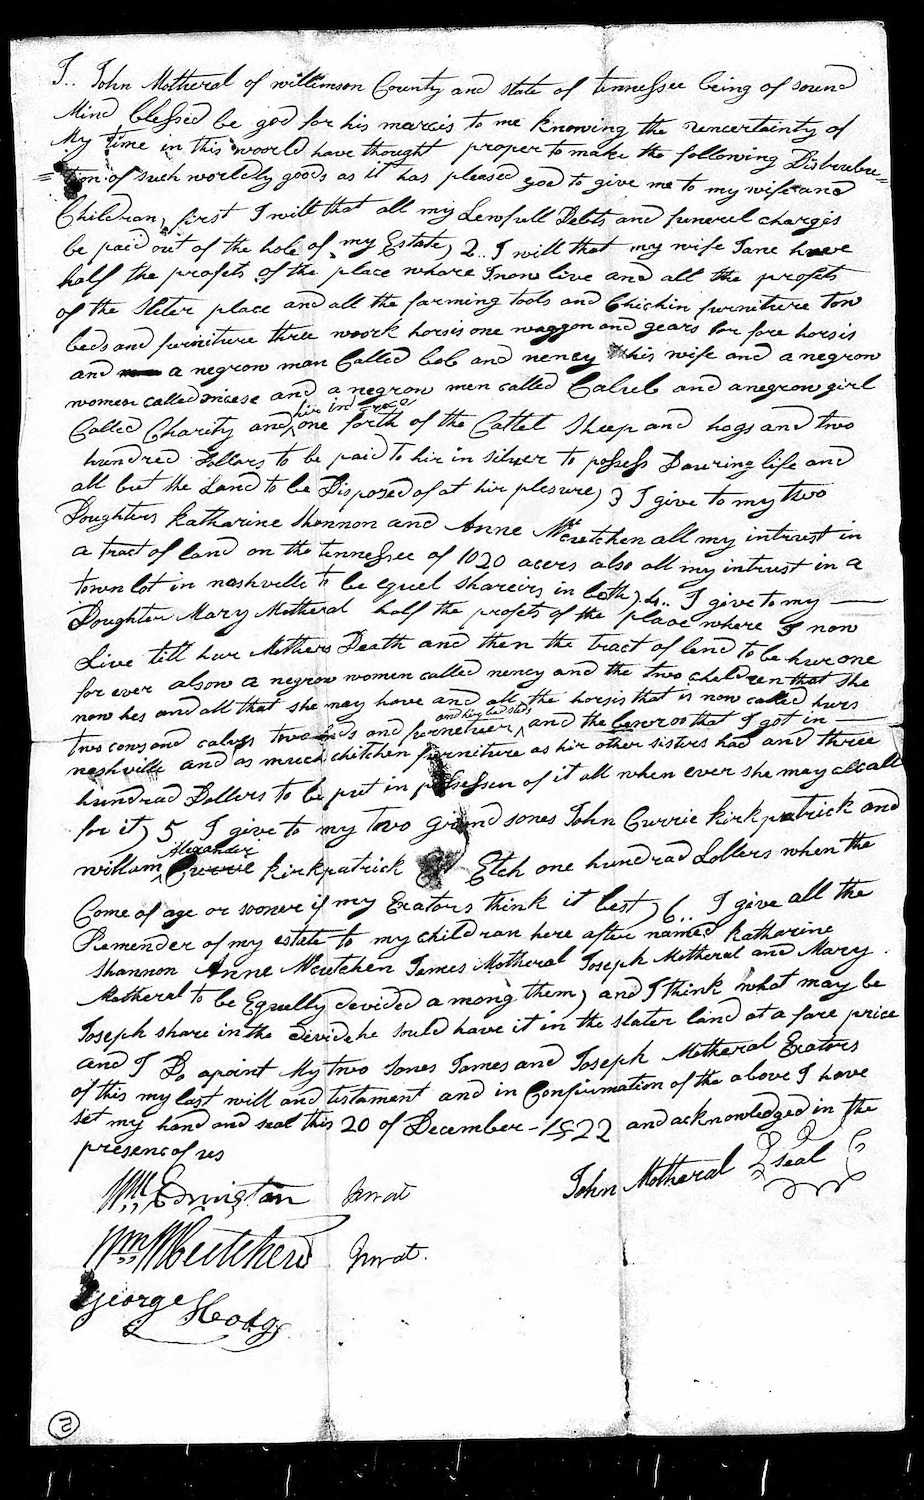 I.. John Motheral of willimson County and state of tennessee being of sound
Mind blessed be god for his marcis to me knowing the uncertainty of
My time in this world have thought proper to make the following Distrubu=
=tion of such worldly goods as it has pleased god to give me to my wife and
Children, first I will that all my Lewfull Debts and funerel charges
be paid out of the hole of my Estate) 2.. I will that my wife Jane have
half the profets of the place whare I now live and all the profets
of the sleter place and all the farming tools and Chichin furniture tow
beds and furniture three work horsis one waggon and gears for fore horsis
and a negrow man Called bob and nency his wife and a negrow
women called and a negrow men called Caleb and a negrow girl
Called Charity and one forth of the Cattel Sheep and hogs and two
hir ind
hundred Dollars to be paid to hir in silver to possess Dauring life and
all but the Land to be Disposed of at hir plesure) 3 I give to my two
Doughters Katharine Shannon and Anne Mccutchen all my intrust in
a tract of land on the tennessee of 1020 acers also all my intrust in a
town lot in nashville to be equel shareirs in both) 4.. I give to my —
Doughter Mary Motheral half the profets of the place where I now
Live till hur Mothers Death and then the tract of lend to be hur one
for ever alsow a negrow women called nency and the two children that she
now hes and all that she may have and all the horsis that is now called hurs
two cows and calvs tow beds and fornetuer and the that I got in —
and hig bedsteds
neshville and as much chitchen furniture as hir other sisters had and three
hundrad Dollers to be put in possessen of it all when ever she may call
for it) 5 I give to my two grand sones John Currie Kirkpatrick and
william Alexander Currie Kirkpatrick Etch one hundrad Dollers when the
Come of age or sooner if my Exators think it best) 6.. I give all the
Remender of my estate to my children here after named Katharine
Shannon Anne Mcutchen James Motheral Joseph Motheral and Mary
Motheral to be Equelly devided among them) and I think what may be
Joseph share in the devide he sould have it in the slater land at a fare price
and I Do apoint My two Sones James and Joseph Motheral Exators
of this my last will and testament and in Confirmation of the above I have
set my hand and seal this 20 of December - 1822 and acknowledged in the
presenc of us
John Motheral seal
Wm Edrington Jurat
Wm McCutchen Jurat.
George Hodg
2